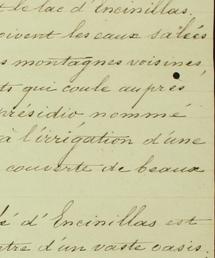 t le lac d'Encinillas,
oivent les eaux salées
s montagnes voisines
ts qui coule auprès
présidio nommé
à l'irrigation d'une
couverte de beaux
é d'Encinillas est
ntre d'un vaste oasis